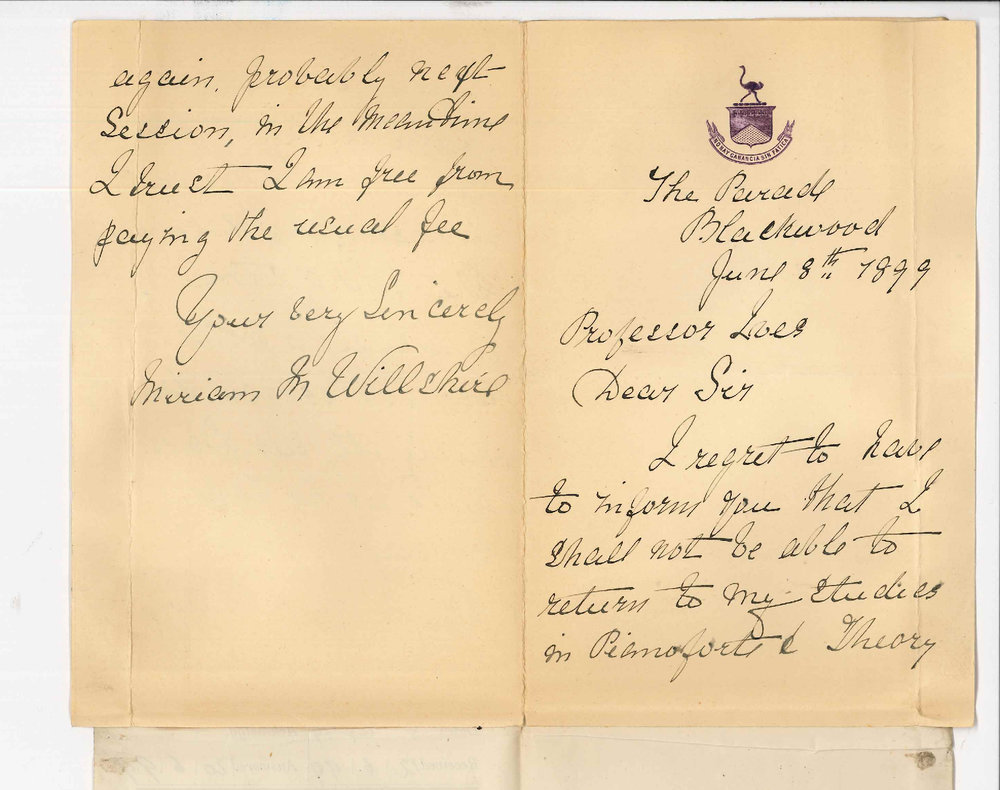 NO HAY GANANCIA SIN FATIGA
The Parade
Blackwood
June 8th 1899
Professor Ives
Dear Sir
I regret to have
to inform you that I
shall not be able to
return to my studies
in Pianoforte & Theory
again, probably next
Session, in the meantime
I trust I am free from
paying the usual fee
Yours very Sincerely
Miriam M Willshire